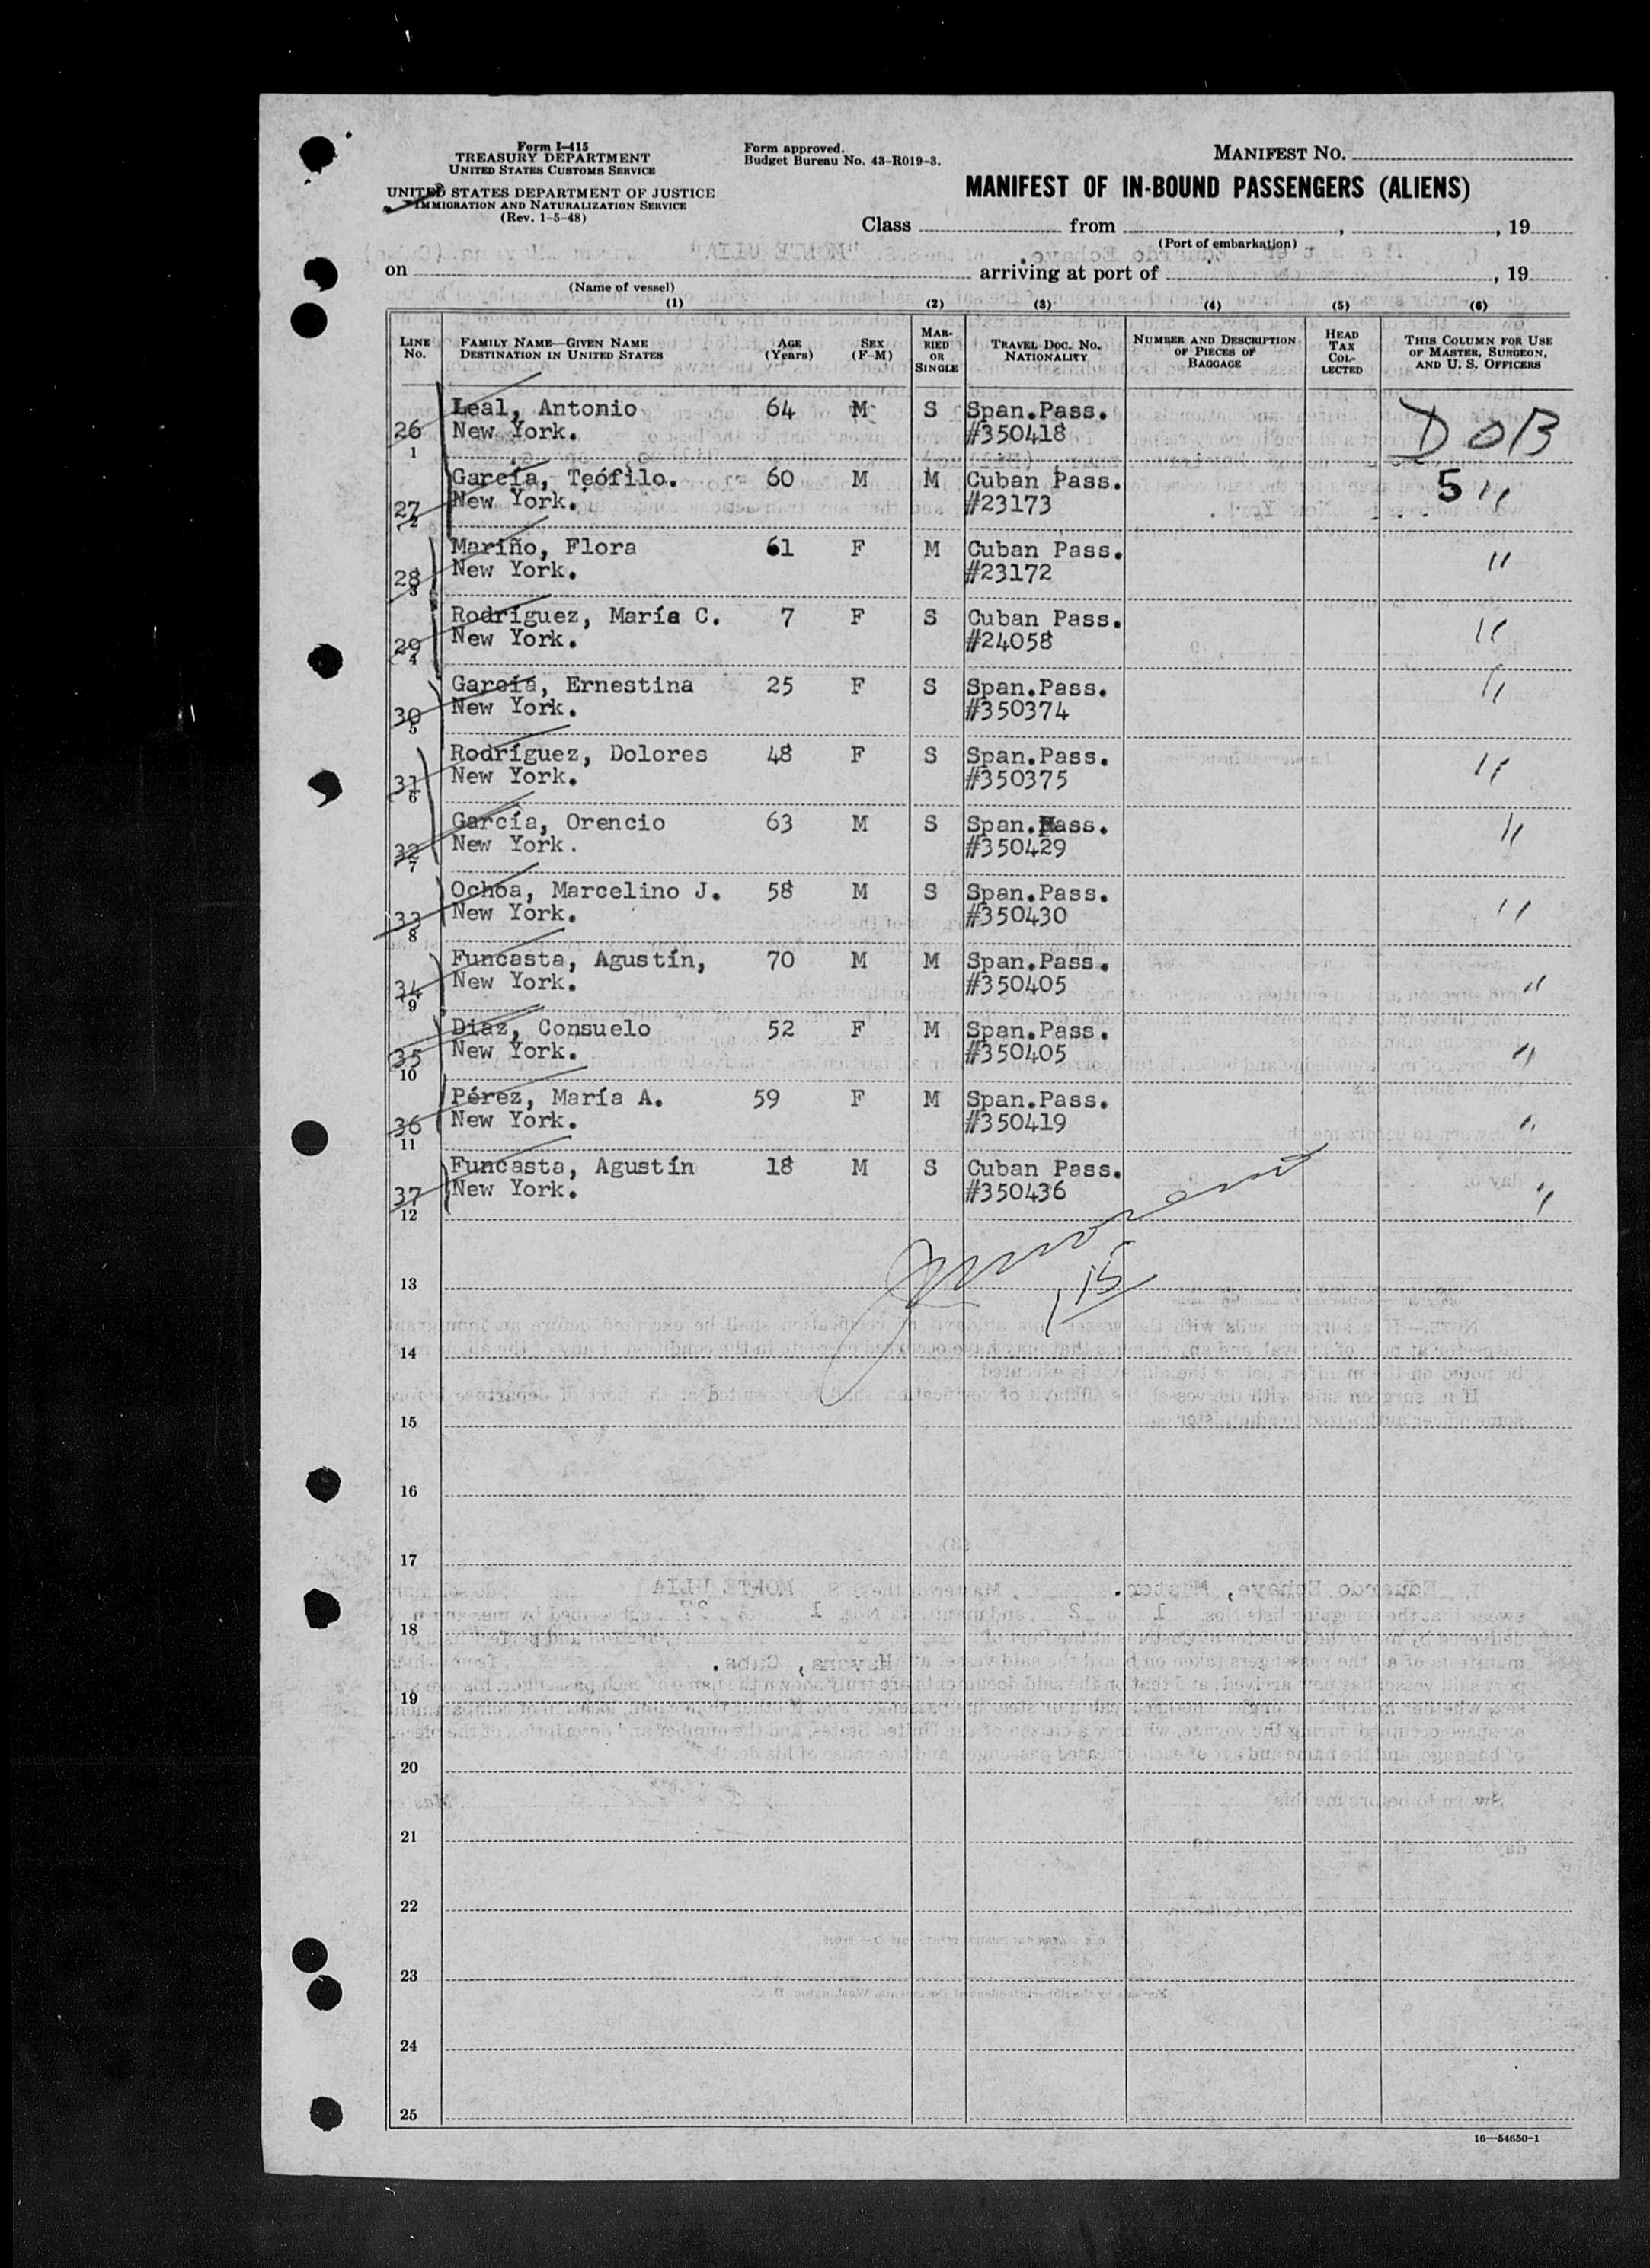 Form I-415
TREASURY DEPARTMENT
UNITED STATES CUSTOMS SERVICE
UNITED STATES DEPARTMENT OF JUSTICE
IMMIGRATION AND NATURALIZATION SERVICE
(Rev. 1-5-48)
Form approved.
Budget Bureau No. 43-R019-3.
MANIFEST NO.
MANIFEST OF IN-BOUND PASSENGERS (ALIENS)
Class from , , 19
(Port of embarkation)
on arriving at port of , 19
(Name of vessel)
(1) (2) (3) (4) (5) (6)
LINE No. FAMILY NAME—GIVEN NAME DESTINATION IN UNITED STATES AGE (Years) SEX (F-M) MARRIED OR SINGLE TRAVEL DOC. NO. NATIONALITY NUMBER AND DESCRIPTION OF PIECES OF BAGGAGE HEAD TAX COLLECTED THIS COLUMN FOR USE OF MASTER, SURGEON, AND U. S. OFFICERS
Leal, Antonio 64 M S Span.Pass.
26 New York. #350418 DOB
1
García, Teófilo. 60 M M Cuban Pass. 5 "
27 New York. #23173
2
Mariño, Flora 61 F M Cuban Pass. "
28 New York. #23172
3
Rodríguez, María C. 7 F S Cuban Pass. "
29 New York. #24058
4
García, Ernestina 25 F S Span.Pass. "
30 New York. #350374
5
Rodríguez, Dolores 48 F S Span.Pass. "
31 New York. #350375
6
García, Orencio 63 M S Span.Pass. "
32 New York. #350429
7
Ochoa, Marcelino J. 58 M S Span.Pass. "
33 New York. #350430
8
Funcasta, Agustín, 70 M M Span.Pass.
34 New York. #350405 "
9
Diaz, Consuelo 52 F M Span.Pass.
35 New York. #350405 "
10
Pérez, María A. 59 F M Span.Pass.
36 New York. #350419 "
11
Funcasta, Agustín 18 M S Cuban Pass.
37 New York. #350436 "
12
13
14
15
16
17
18
19
20
21
22
23
24
25
16—54650-1